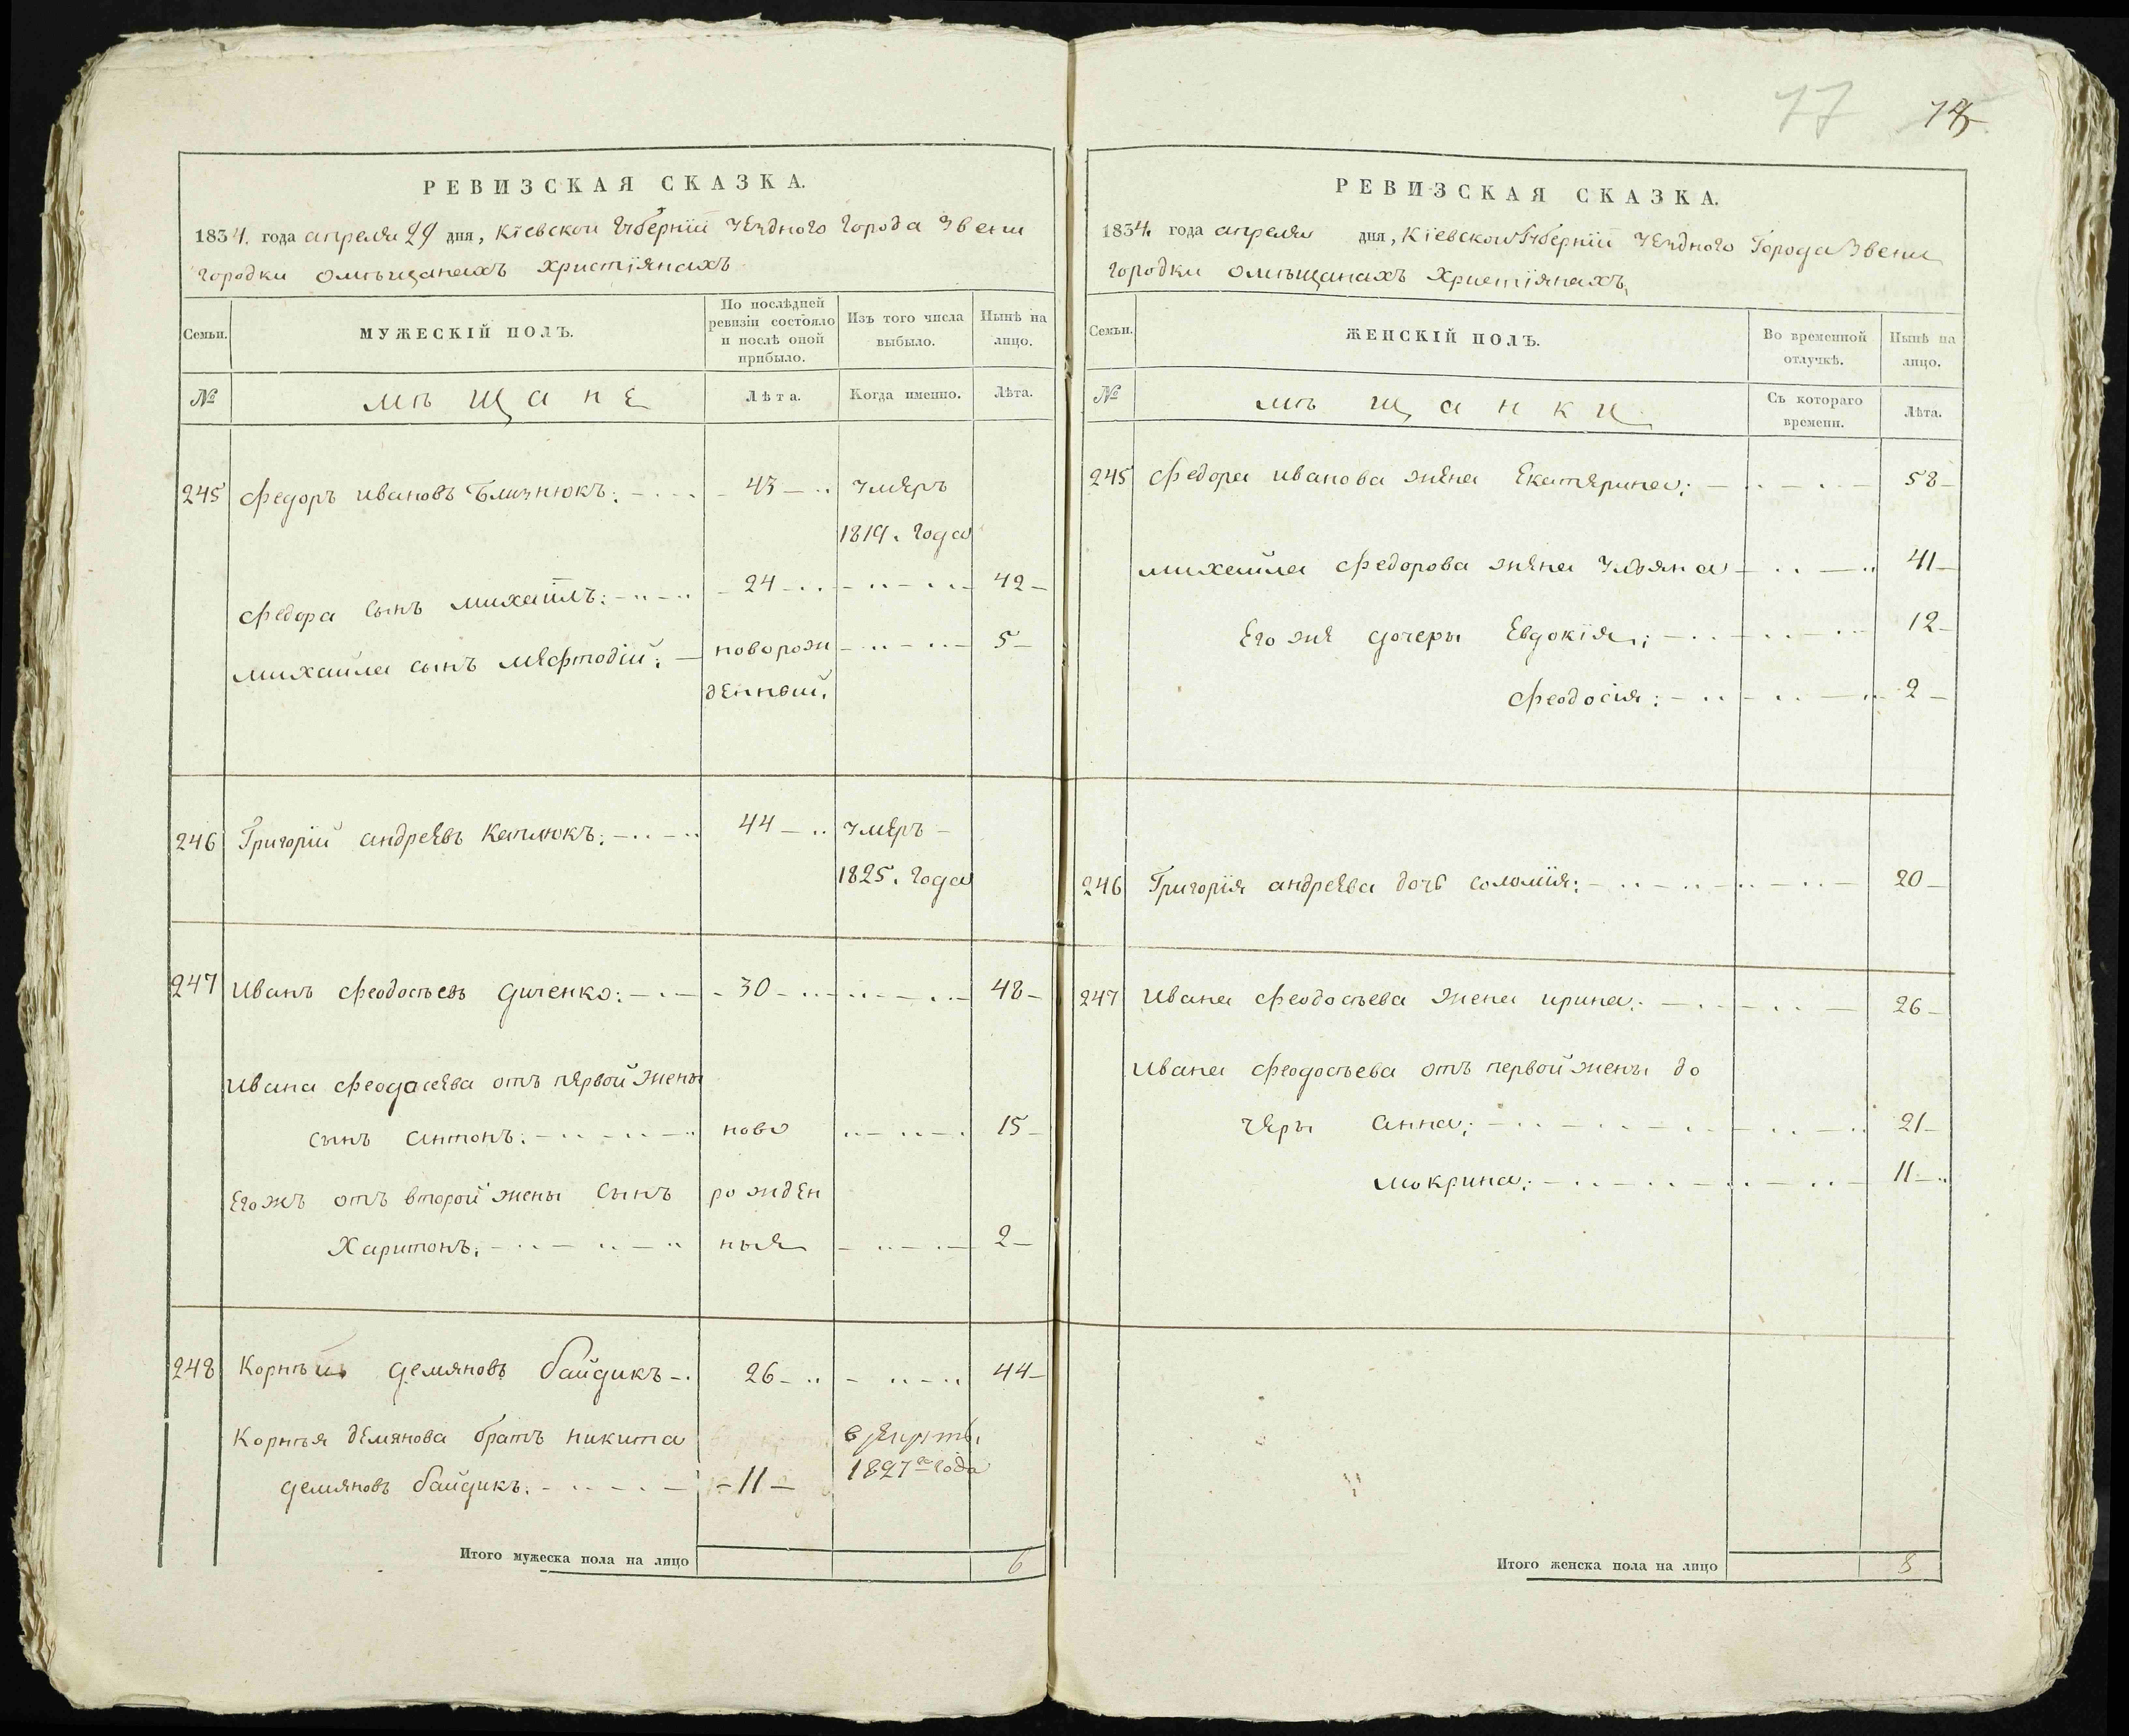 77 78
РЕВИЗСКАЯ СКАЗКА.
1834. года апреля 29 дня, Кіевской Губерніи уезднаго города Звени
городки омѣщанахъ християнахъ
Семьи.
МУЖЕСКІЙ ПОЛЪ.
По послѣдней
ревизіи состояло
и послѣ оной
прибыло.
Изъ того числа
выбыло.
Нынѣ на
лицо.
№
мѣщане
Лѣта.
Когда именно.
Лѣта.
245 Федоръ Ивановъ Близнюкъ: 43 умеръ
1819. года
Федора сынъ Михаилъ: 24 42
Михаила сынъ Мефтодій: новорож 5
денный.
246 Григорій андреевъ Каплюкъ: 44 умеръ
1825. года
247 Иванъ Феодосьевъ Диченко: 30 48
Ивана Феодосева отъ первой жены
сынъ Антонъ: ново 15
Егожъ отъ второй жены сынъ рожден
Харитонъ: ныя 2
248 Корнѣй Демяновъ Байдикъ 26 44
Корнѣя Демянова братъ Никита
1827го года
Демяновъ Байдикъ: 11
Итого мужеска пола на лицо 6
РЕВИЗСКАЯ СКАЗКА.
1834 года апреля дня, Кіевской Губерніи уезднаго Города Звени
городки омѣщанахъ Християнахъ,
Семьи.
ЖЕНСКІЙ ПОЛЪ.
Во временной
отлучкѣ.
Нынѣ на
лицо.
№
мѣщанки
Съ котораго
времени.
Лѣта.
245 Федора Иванова жена Екатерина: 58
Михайла Федорова жена Ульяна 41
Его же дочеры Евдокія: 12
Феодосія: 2
246 Григорія андреева дочь соломія: 20
247 Ивана Феодосьева жена ирина: 26
Ивана Феодосьева отъ первой жены до
черы Анна: 21
Мокрина: 11
Итого женска пола на лицо 8